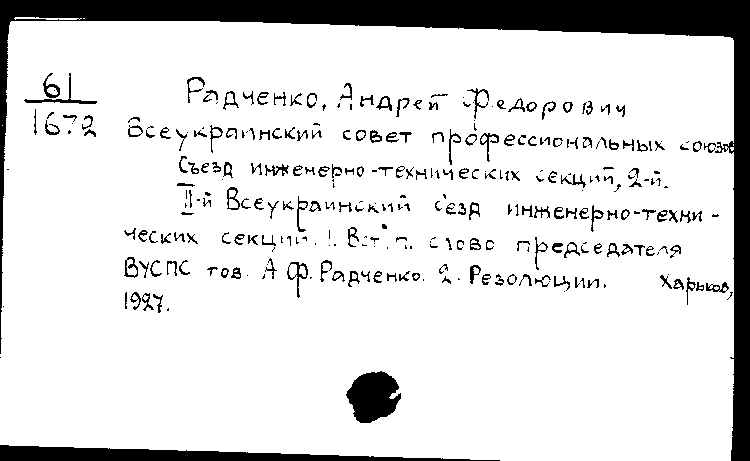 61
1672
Радченко, Андрей Федорович
Всеукраинский совет профессиональных союзов
Съезд инженерно-технических секций, 2-й.
II-й Всеукраинский с'езд инженерно-техни-
ческих секций. 1. Вст. п. слово председателя
ВУСПС тов. А Ф. Радченко. 2. Резолюции. Харьков,
1927.